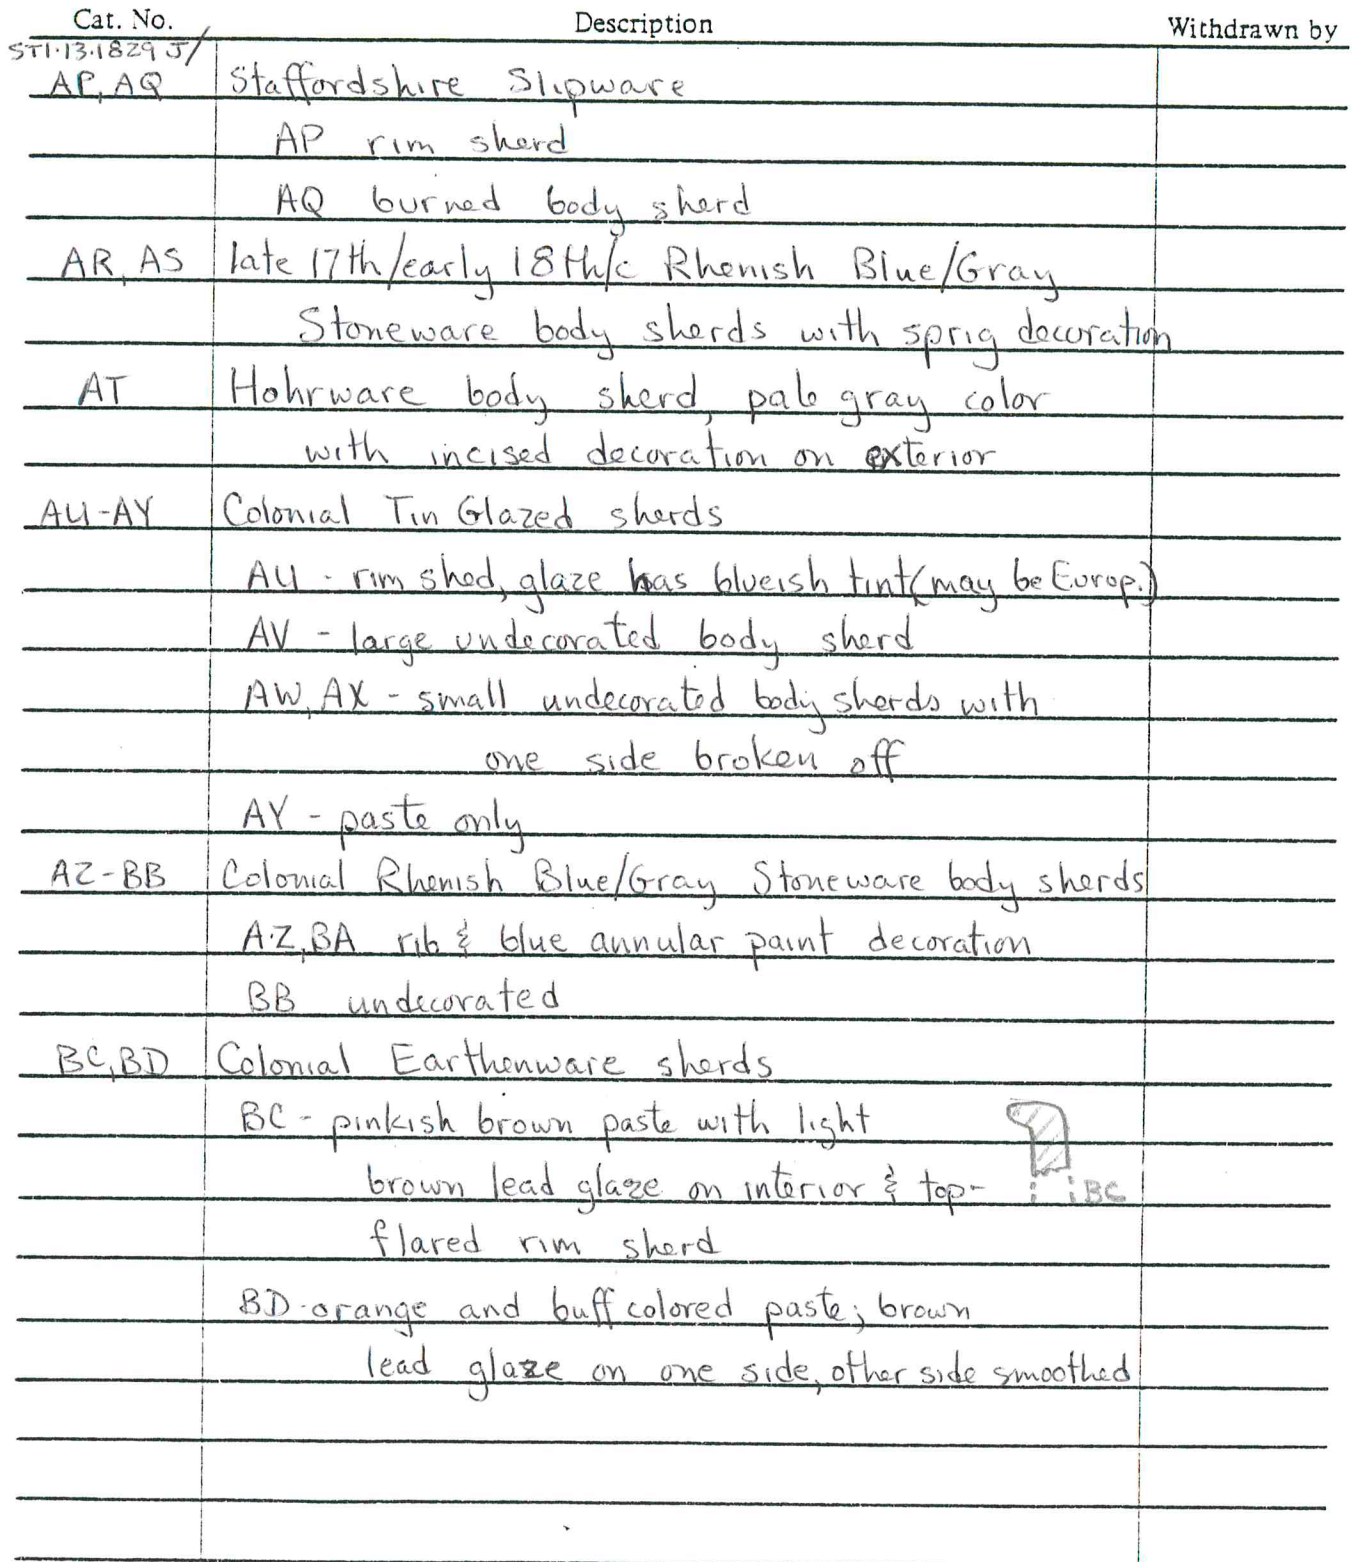 Cat. No. Description Withdrawn by
ST1·13·1829 J/
AP, AQ Staffordshire Slipware
AP rim sherd
AQ burned body sherd
AR, AS late 17th/early 18th/c Rhenish Blue/Gray
Stoneware body sherds with sprig decoration
AT Hohrware body sherd, pale gray color
with incised decoration on exterior
AU-AY Colonial Tin Glazed sherds
AU - rim shed, glaze has blueish tint (may be Europ.)
AV - large undecorated body sherd
AW, AX - small undecorated body sherds with
one side broken off
AY - paste only
AZ-BB Colonial Rhenish Blue/Gray Stoneware body sherds
AZ, BA rib & blue annular paint decoration
BB undecorated
BC, BD Colonial Earthenware sherds
BC - pinkish brown paste with light
brown lead glaze on interior & top-
BC
flared rim sherd
BD - orange and buff colored paste; brown
lead glaze on one side, other side smoothed